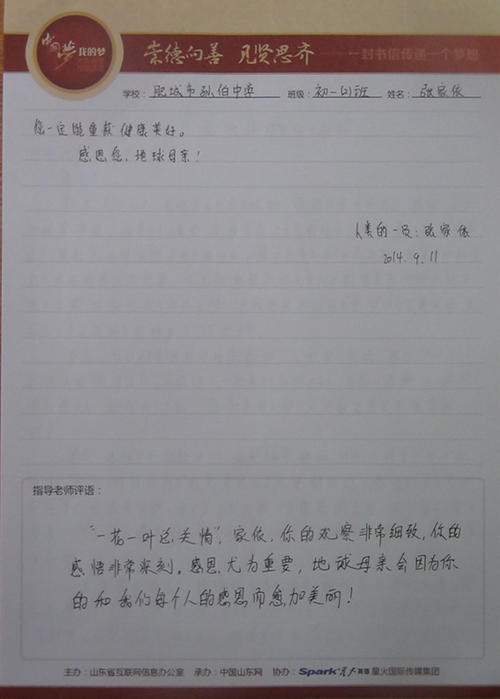 中国梦 我的梦
崇德向善 见贤思齐 ——一封书信传递一个梦想
学校:肥城市孙伯中学 班级:初一四班 姓名:张家依
您一定能重获健康美好。
感恩您,地球母亲!
人类的一员:张家依
2014.9.11
指导老师评语:
"一花一叶总关情",家依,你的观察非常细致,你的
感悟非常深刻。感恩尤为重要,地球母亲会因为你
的和我们每个人的感恩而愈加美丽!
主办:山东省互联网信息办公室 承办:中国山东网 协办:Spark星火英语 星火国际传媒集团